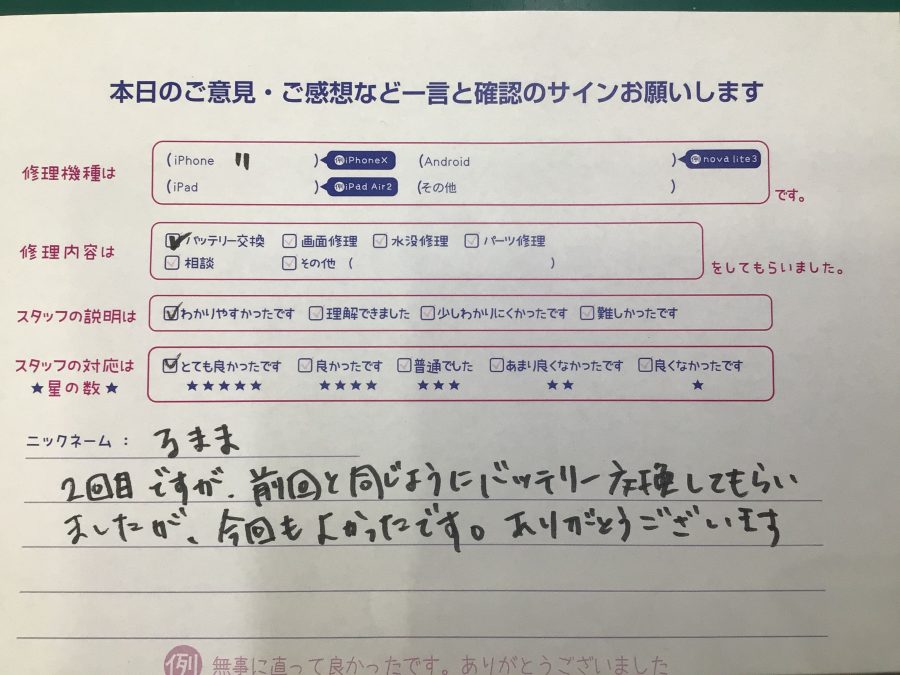 本日のご意見・ご感想など一言と確認のサインお願いします
修理機種は (iPhone 11 ) 例iPhoneX (Android ) 例nova lite3
(iPad ) 例iPad Air2 (その他 ) です。
修理内容は バッテリー交換 画面修理 水没修理 パーツ修理
相談 その他 ( ) をしてもらいました。
スタッフの説明は わかりやすかったです 理解できました 少しわかりにくかったです 難しかったです
スタッフの対応は とても良かったです 良かったです 普通でした あまり良くなかったです 良くなかったです
★星の数★ ★★★★★ ★★★★ ★★★ ★★ ★
ニックネーム： るまま
2回目ですが、前回と同じようにバッテリー交換してもらい
ましたが、今回もよかったです。ありがとうございます
例 無事に直って良かったです。ありがとうございました